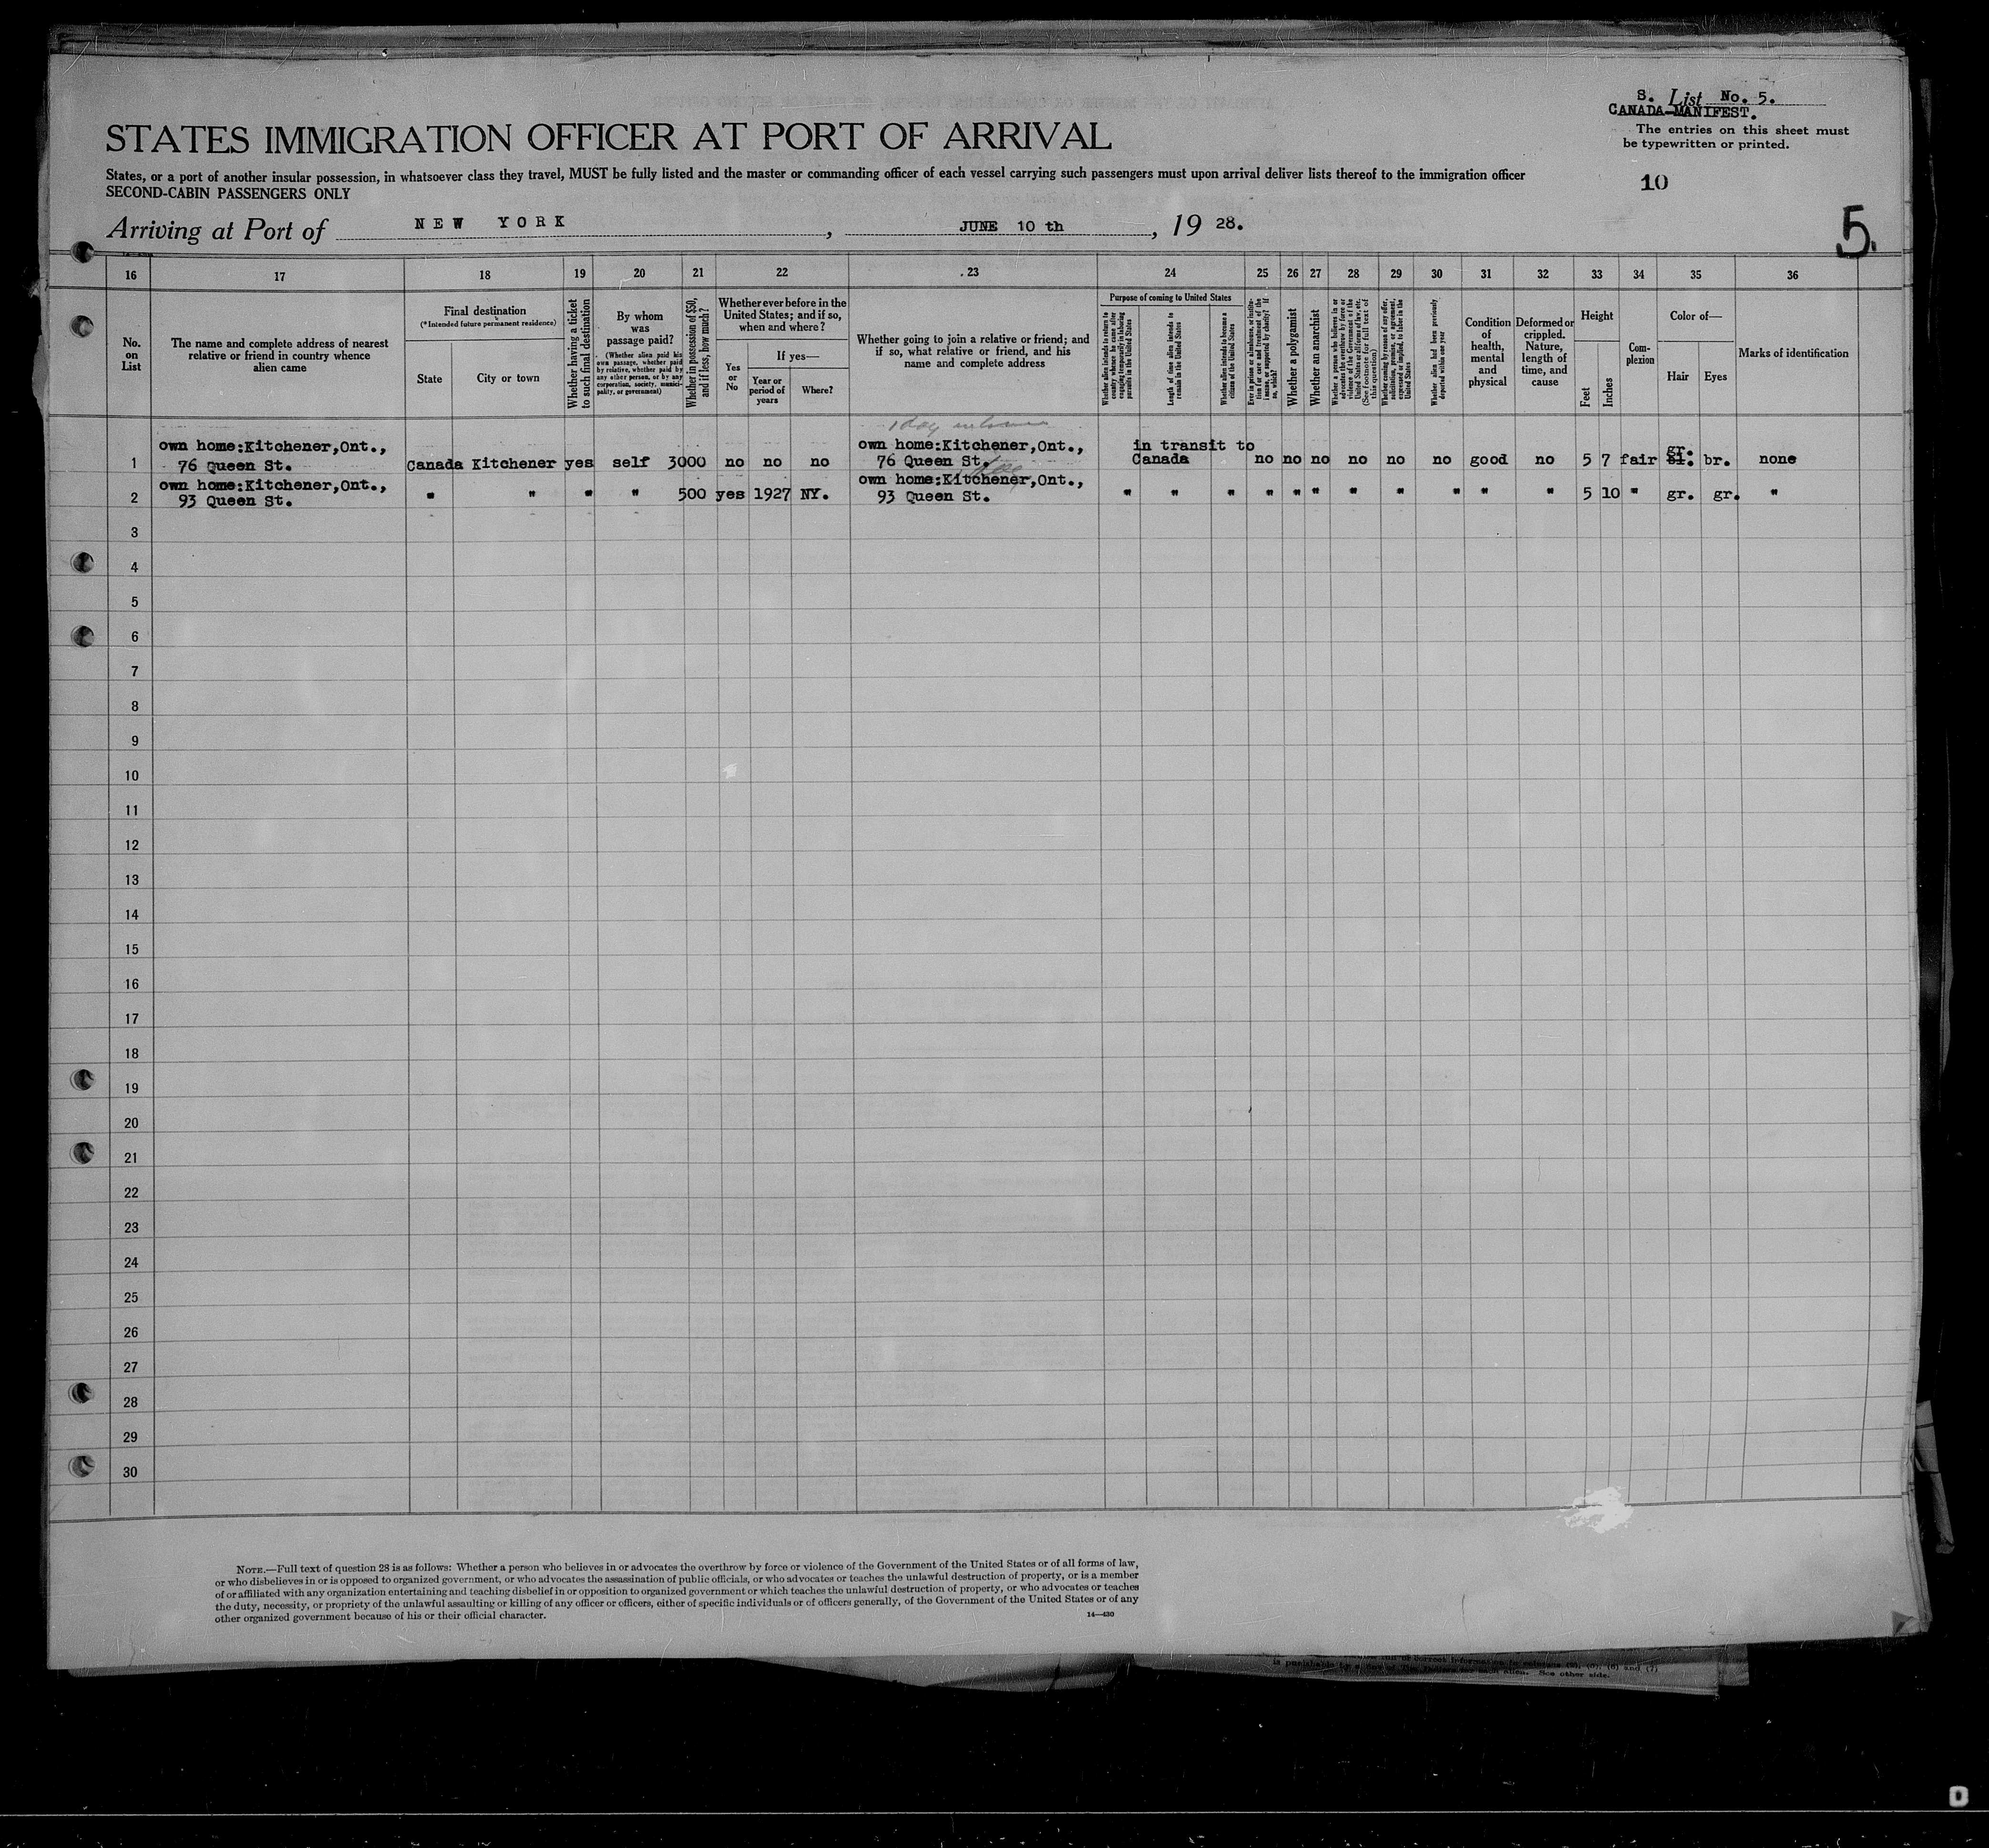 S. List No. 5.
CANADA MANIFEST.
The entries on this sheet must
be typewritten or printed.
STATES IMMIGRATION OFFICER AT PORT OF ARRIVAL
States, or a port of another insular possession, in whatsoever class they travel, MUST be fully listed and the master or commanding officer of each vessel carrying such passengers must upon arrival deliver lists thereof to the immigration officer
SECOND-CABIN PASSENGERS ONLY
10
Arriving at Port of NEW YORK, JUNE 10 th, 19 28.
5.
16 17 18 19 20 21 22 23 24 25 26 27 28 29 30 31 32 33 34 35 36
No. on List
The name and complete address of nearest
relative or friend in country whence
alien came
Final destination
(*Intended future permanent residence)
State
City or town
Whether having a ticket
to such final destination
By whom
was
passage paid?
(Whether alien paid his
own passage, whether paid
by relative, whether paid by
any other person, or by any
corporation, society, munici-
pality, or government)
Whether in possession of $50,
and if less, how much?
Whether ever before in the
United States; and if so,
when and where?
Yes
or
No
If yes—
Year or
period of
years
Where?
Whether going to join a relative or friend; and
if so, what relative or friend, and his
name and complete address
Purpose of coming to United States
Whether alien intends to return to
country whence he came after
engaging temporarily in laboring
pursuits in the United States
Length of time alien intends to
remain in the United States
Whether alien intends to become a
citizen of the United States
Ever in prison or almshouse, or institu-
tion for care and treatment of the
insane, or supported by charity? If
so, which?
Whether a polygamist
Whether an anarchist
Whether a person who believes in or
advocates the overthrow by force or
violence of the Government of the
United States or all forms of law, etc.
(See footnote for full text of
this question)
Whether coming by reason of any offer,
solicitation, promise, or agreement,
expressed or implied, to labor in the
United States
Whether alien had been previously
deported within one year
Condition
of
health,
mental
and
physical
Deformed or
crippled.
Nature,
length of
time, and
cause
Height
Feet
Inches
Com-
plexion
Color of—
Hair
Eyes
Marks of identification
own home:Kitchener,Ont., own home:Kitchener,Ont., in transit to gr.
1 76 Queen St. Canada Kitchener yes self 3000 no no no 76 Queen St. Canada no no no no no no good no 5 7 fair br. none
own home:Kitchener,Ont., own home:Kitchener,Ont.,
2 93 Queen St. " " " " 500 yes 1927 NY. 93 Queen St. " " " " " " " " " " " 5 10 " gr. gr. "
3
4
5
6
7
8
9
10
11
12
13
14
15
16
17
18
19
20
21
22
23
24
25
26
27
28
29
30
NOTE.—Full text of question 28 is as follows: Whether a person who believes in or advocates the overthrow by force or violence of the Government of the United States or of all forms of law,
or who disbelieves in or is opposed to organized government, or who advocates the assassination of public officials, or who advocates or teaches the unlawful destruction of property, or is a member
of or affiliated with any organization entertaining and teaching disbelief in or opposition to organized government or which teaches the unlawful destruction of property, or who advocates or teaches
the duty, necessity, or propriety of the unlawful assaulting or killing of any officer or officers, either of specific individuals or of officers generally, of the Government of the United States or of any
other organized government because of his or their official character.
14—430
See other side.
D